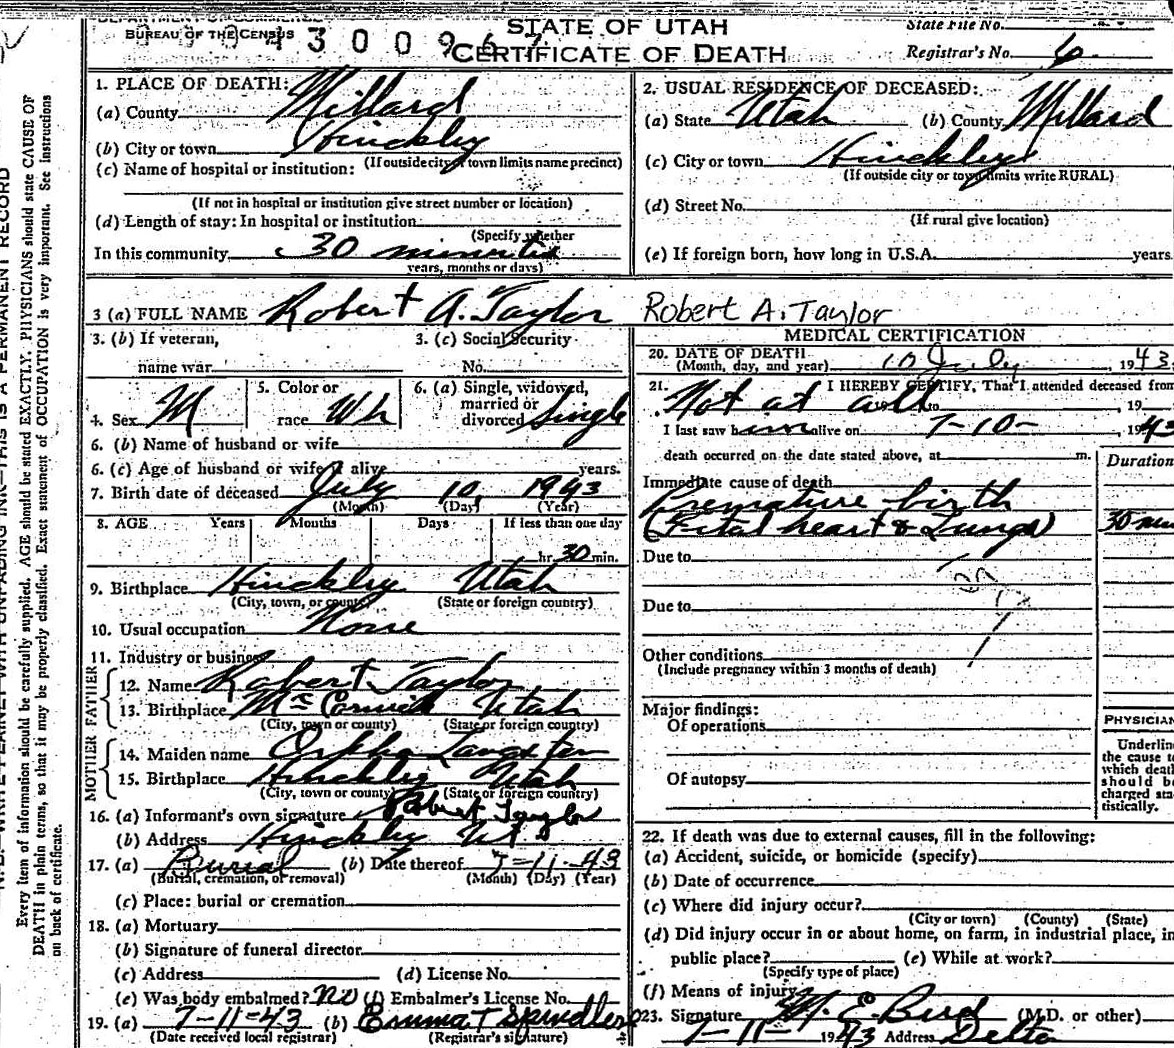 BUREAU OF THE CENSUS
STATE OF UTAH
CERTIFICATE OF DEATH
State File No.
Registrar's No. 6
1. PLACE OF DEATH:
(a) County Millard
(b) City or town Hinckley
(If outside city or town limits name precinct)
(c) Name of hospital or institution:
(If not in hospital or institution give street number or location)
(d) Length of stay: In hospital or institution
(Specify whether
In this community 30 minutes
years, months or days)
2. USUAL RESIDENCE OF DECEASED:
(a) State Utah (b) County Millard
(c) City or town Hinckley
(If outside city or town limits write RURAL)
(d) Street No.
(If rural give location)
(e) If foreign born, how long in U.S.A. years
3 (a) FULL NAME Robert A. Taylor Robert A. Taylor
3. (b) If veteran,
name war
3. (c) Social Security
No.
4. Sex M
5. Color or
race Wh
6. (a) Single, widowed,
married or
divorced Single
6. (b) Name of husband or wife
6. (c) Age of husband or wife if alive years.
7. Birth date of deceased July 10, 1943
(Month) (Day) (Year)
8. AGE Years Months Days If less than one day
hr. 30 min.
9. Birthplace Hinckley Utah
(City, town, or county) (State or foreign country)
10. Usual occupation None
11. Industry or business
FATHER
12. Name Robert Taylor
13. Birthplace Mc Cornick Utah
(City, town or county) (State or foreign country)
MOTHER
14. Maiden name Orpha Langston
15. Birthplace Hinckley Utah
(City, town or county) (State or foreign country)
16. (a) Informant's own signature Robert Taylor
(b) Address Hinckley Ut
17. (a) Burial (b) Date thereof 7-11-43
(Burial, cremation, or removal) (Month) (Day) (Year)
(c) Place: burial or cremation
18. (a) Mortuary
(b) Signature of funeral director
(c) Address (d) License No.
(e) Was body embalmed? no (f) Embalmer's License No.
19. (a) 7-11-43 (b) Emma T Spindler
(Date received local registrar) (Registrar's signature)
MEDICAL CERTIFICATION
20. DATE OF DEATH
(Month, day, and year) 10 July 1943
21. I HEREBY CERTIFY, That I attended deceased from
Not at all to , 19
I last saw him alive on 7-10- , 1943
death occurred on the date stated above, at m.
Duration
Immediate cause of death
Premature birth
(Fetal heart & Lungs) 30 min
Due to
Due to
Other conditions
(Include pregnancy within 3 months of death)
Major findings:
Of operations
Of autopsy
PHYSICIAN
Underlin
the cause t
which deat
should b
charged sta
tistically.
22. If death was due to external causes, fill in the following:
(a) Accident, suicide, or homicide (specify)
(b) Date of occurrence
(c) Where did injury occur?
(City or town) (County) (State)
(d) Did injury occur in or about home, on farm, in industrial place, in
public place? (e) While at work?
(Specify type of place)
(f) Means of injury
23. Signature M. E. Bird (M.D. or other)
7-11- 1943 Address Delta
Every item of information should be carefully supplied. AGE should be stated EXACTLY. PHYSICIANS should state CAUSE OF
DEATH in plain terms, so that it may be properly classified. Exact statement of OCCUPATION is very important. See Instructions
on back of certificate.